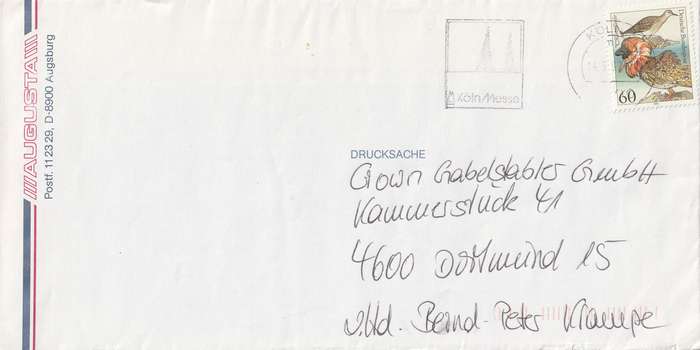 ///AUGUSTA///
Postf. 11 23 29, D-8900 Augsburg
KölnMesse
KÖLN
60
DRUCKSACHE
Crown Gabelstabler GmbH
Kammerstück 41
4600 Dortmund 15
z.Hd. Bernd-Peter Krampe